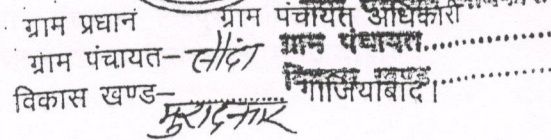 ग्राम प्रधान ग्राम पंचायत अधिकारी
ग्राम पंचायत– सौंदा ग्राम पंचायत..............
विकास खण्ड– मुरादनगर विकास खण्ड..............
गाजियाबाद।